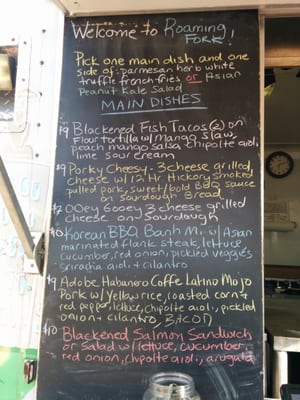 Welcome to Roaming
FORK!
Pick one main dish and one
side of: parmesan herb white
truffle french-fries or Asian
Peanut Kale Salad
MAIN DISHES
$9 Blackened Fish Tacos (2) on
Flour tortilla w/ mango slaw,
peach mango salsa, chipolte aioli,
lime sour cream
$9 Porky Cheesy: 3 cheese grilled
cheese w/ 12 Hr. Hickory smoked
pulled pork, sweet/bold BBQ sauce
on Sourdough Bread
$7 OOey Gooey 3 cheese grilled
cheese on Sourdough
$10 Korean BBQ Banh Mi w/ Asian
marinated flank steak, lettuce,
cucumber, red onion, pickled veggies
sriracha aioli + cilantro
$9 Adobe Habanero Coffe Latino Mojo
Pork w/ Yellow rice, roasted corn +
red pepper, lettuce, chipolte aioli, pickled
onion + cilantro,
$10 Blackened Salmon Sandwich
or Salad w/ lettuce, cucumber,
red onion, chipolte aioli, arugula